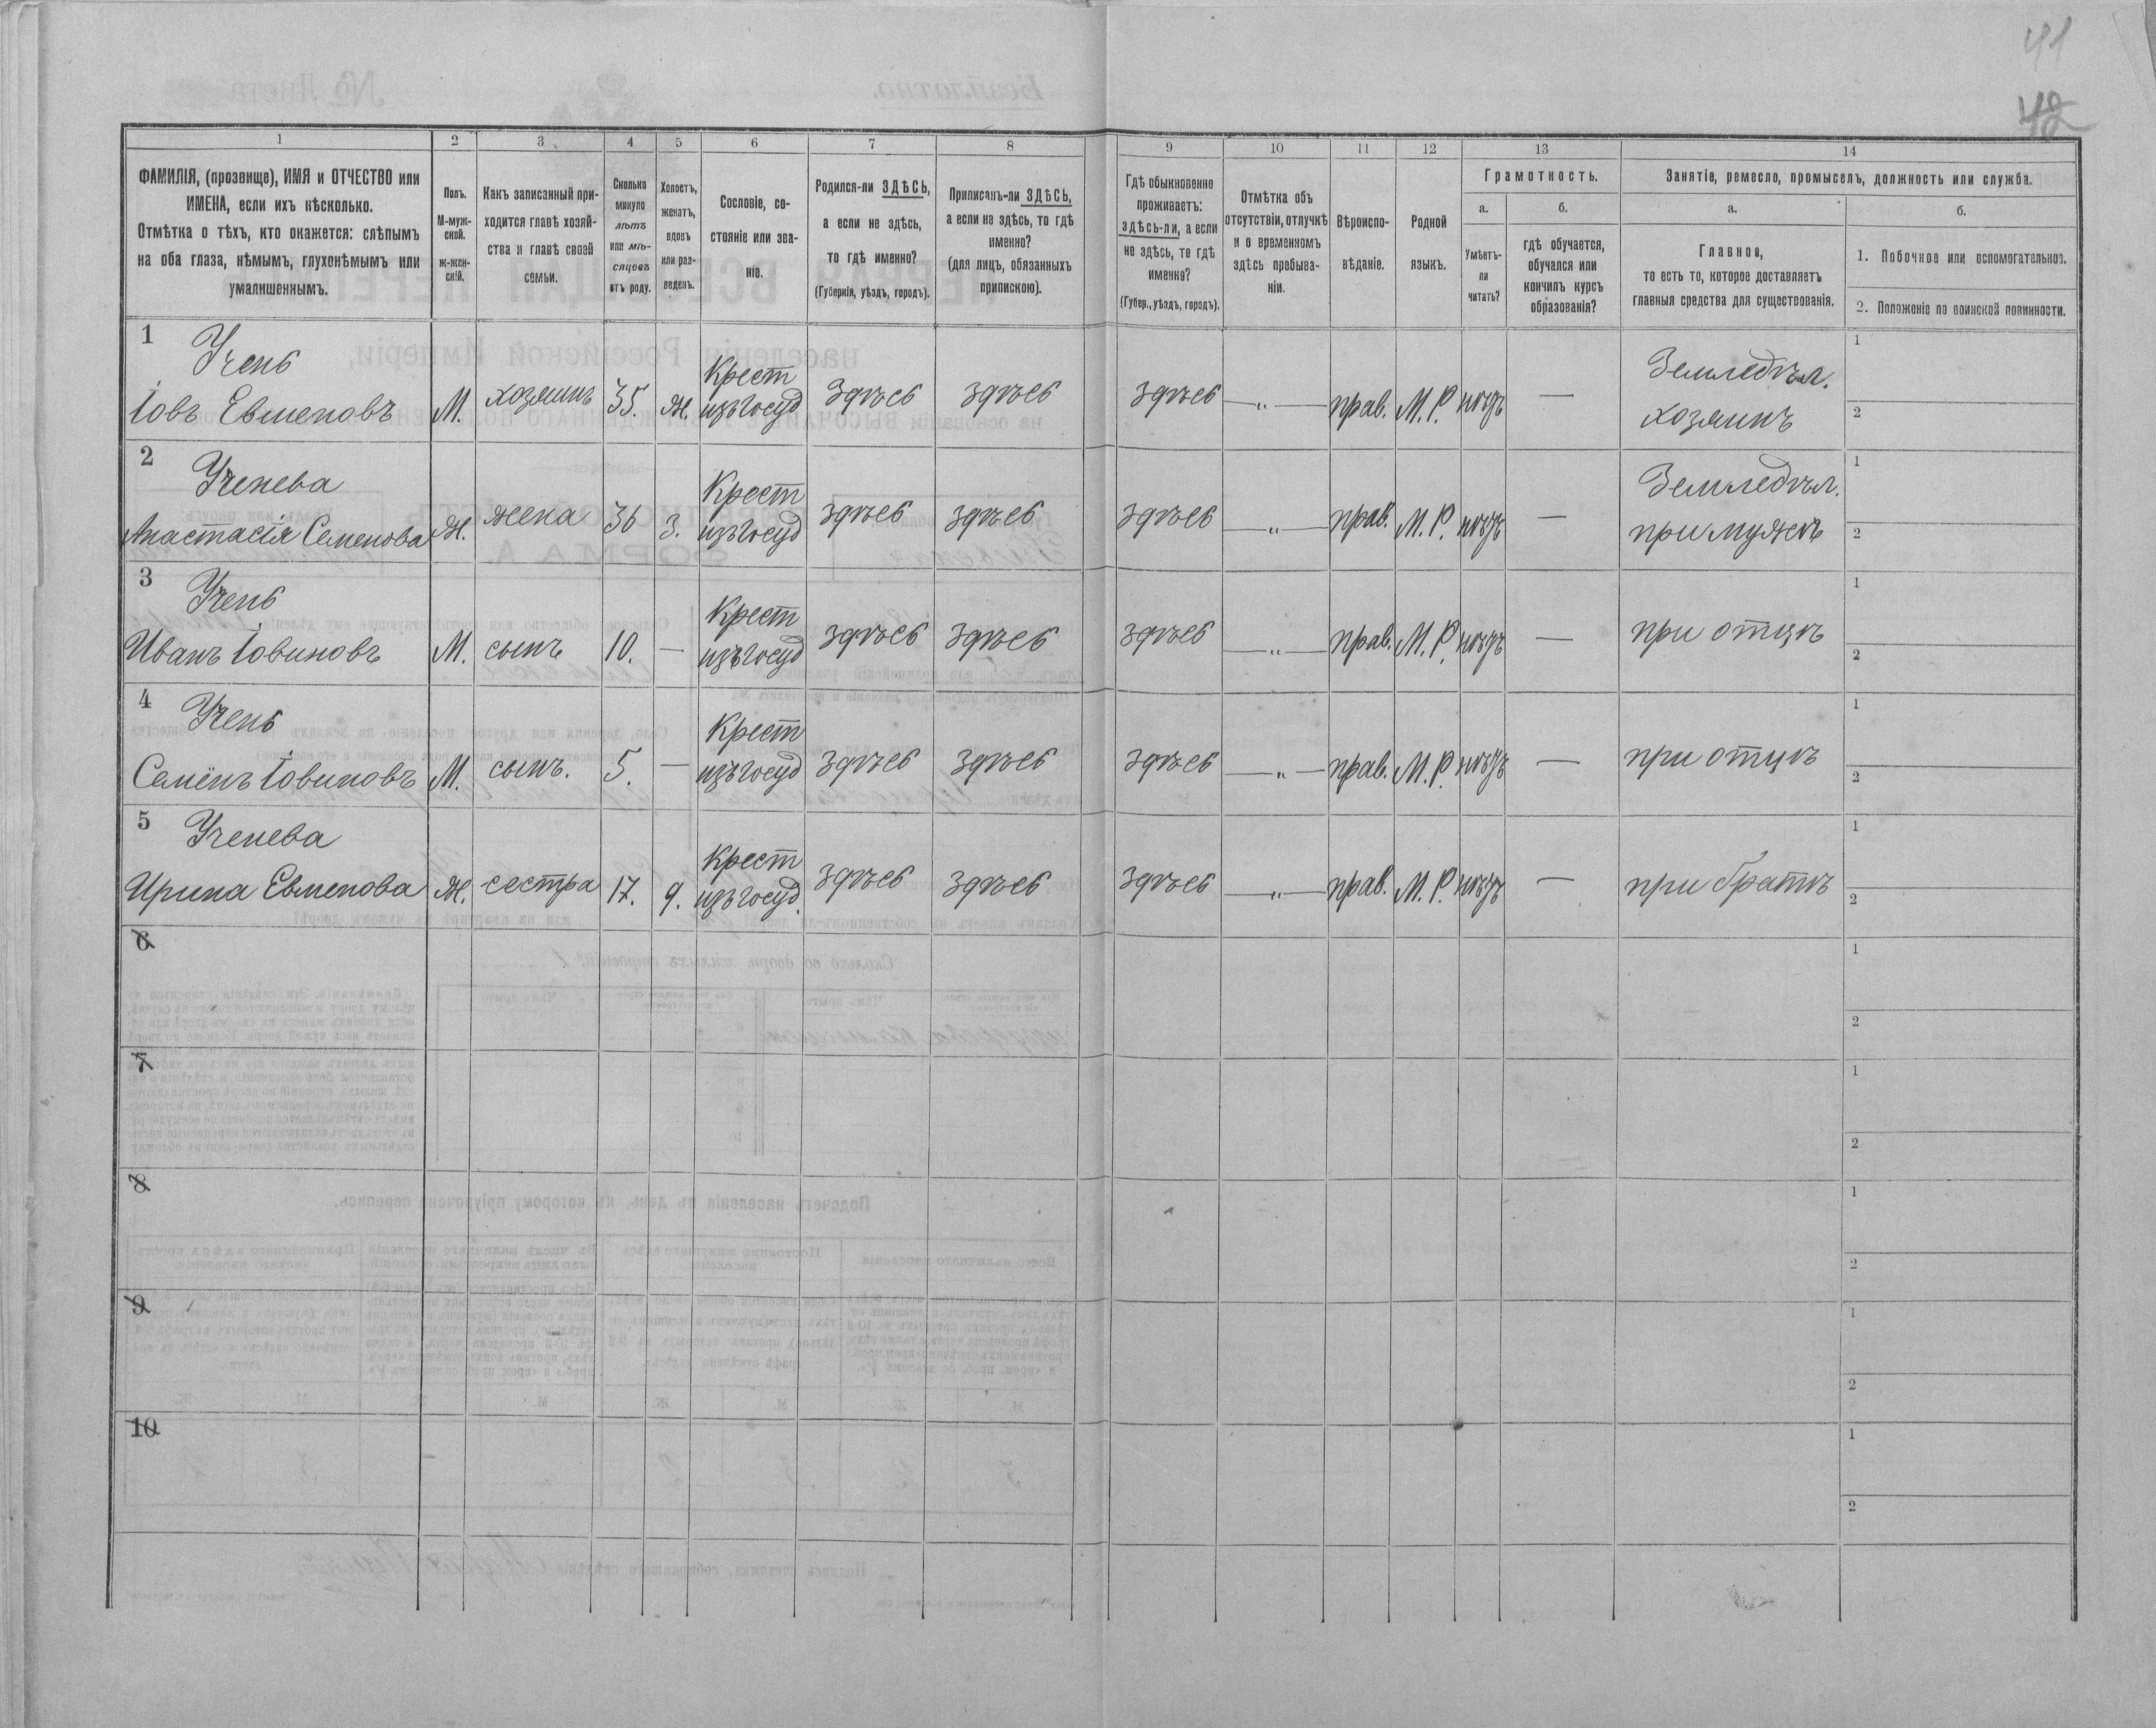 41
42
1 2 3 4 5 6 7 8 9 10 11 12 13 14
ФАМИЛІЯ, (прозвище), ИМЯ и ОТЧЕСТВО или ИМЕНА, если ихъ нѣсколько.
Отмѣтка о тѣхъ, кто окажется: слѣпымъ на оба глаза, нѣмымъ, глухонѣмымъ или умалишеннымъ.
Полъ. М-мужской. ж-женскій.
Какъ записанный приходится главѣ хозяйства и главѣ своей семьи.
Сколько минуло лѣтъ или мѣсяцевъ отъ роду.
Холостъ, женатъ, вдовъ или разведенъ.
Сословіе, состояніе или званіе.
Родился-ли ЗДѢСЬ, а если не здѣсь, то гдѣ именно? (Губернія, уѣздъ, городъ).
Приписанъ-ли ЗДѢСЬ, а если не здѣсь, то гдѣ именно? (для лицъ, обязанныхъ припискою).
Гдѣ обыкновенно проживаетъ: здѣсь-ли, а если не здѣсь, то гдѣ именно? (Губер., уѣздъ, городъ).
Отмѣтка объ отсутствіи, отлучкѣ и о временномъ здѣсь пребываніи.
Вѣроисповѣданіе.
Родной языкъ.
Грамотность.
а. Умѣетъ-ли читать?
б. гдѣ обучается, обучался или кончилъ курсъ образованія?
Занятіе, ремесло, промыселъ, должность или служба.
а. Главное, то есть то, которое доставляетъ главныя средства для существованія.
б.
1. Побочное или вспомогательное.
2. Положеніе по воинской повинности.
1 Учень Крест Земледѣл. 1
Іовъ Евменовъ М. хозяинъ 35. ж. изъ госуд здѣсь здѣсь здѣсь — „ — прав. М. Р. нѣтъ — хозяинъ 2
2 Ученева Крест Земледѣл. 1
Анастасія Семенова Ж. жена 36 з. изъ госуд здѣсь здѣсь здѣсь — „ — прав. М. Р. нѣтъ — при мужѣ 2
3 Учень Крест 1
Иванъ Іовиновъ М. сынъ 10. — изъ госуд здѣсь здѣсь здѣсь — „ — прав. М. Р. нѣтъ — при отцѣ 2
4 Учень Крест 1
Семёнъ Іовиновъ М. сынъ. 5. — изъ госуд здѣсь здѣсь здѣсь — „ — прав. М. Р. нѣтъ — при отцѣ 2
5 Ученева Крест 1
Ирина Евменова Ж. сестра 17. д. изъ госуд. здѣсь здѣсь здѣсь — „ — прав. М. Р. нѣтъ — при братѣ 2
6 1
2
7 1
2
8 1
2
9 1
2
10 1
2